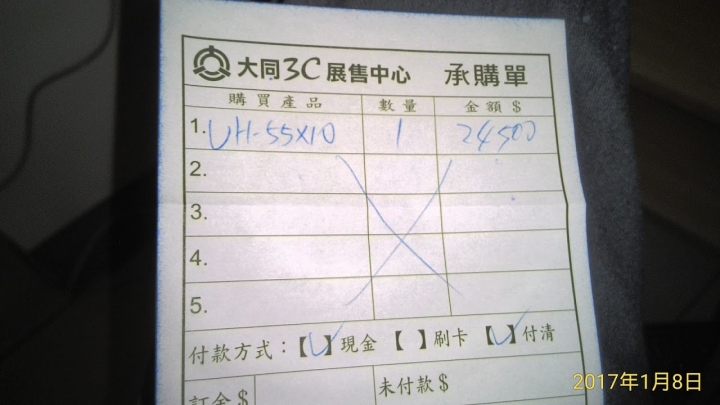 大同3C展售中心 承購單
購買產品 數量 金額$
1. UH-55X10 1 24500
2.
3.
4.
5.
付款方式：【✓】現金【 】刷卡【✓】付清
訂金$ 未付款$
2017年1月8日